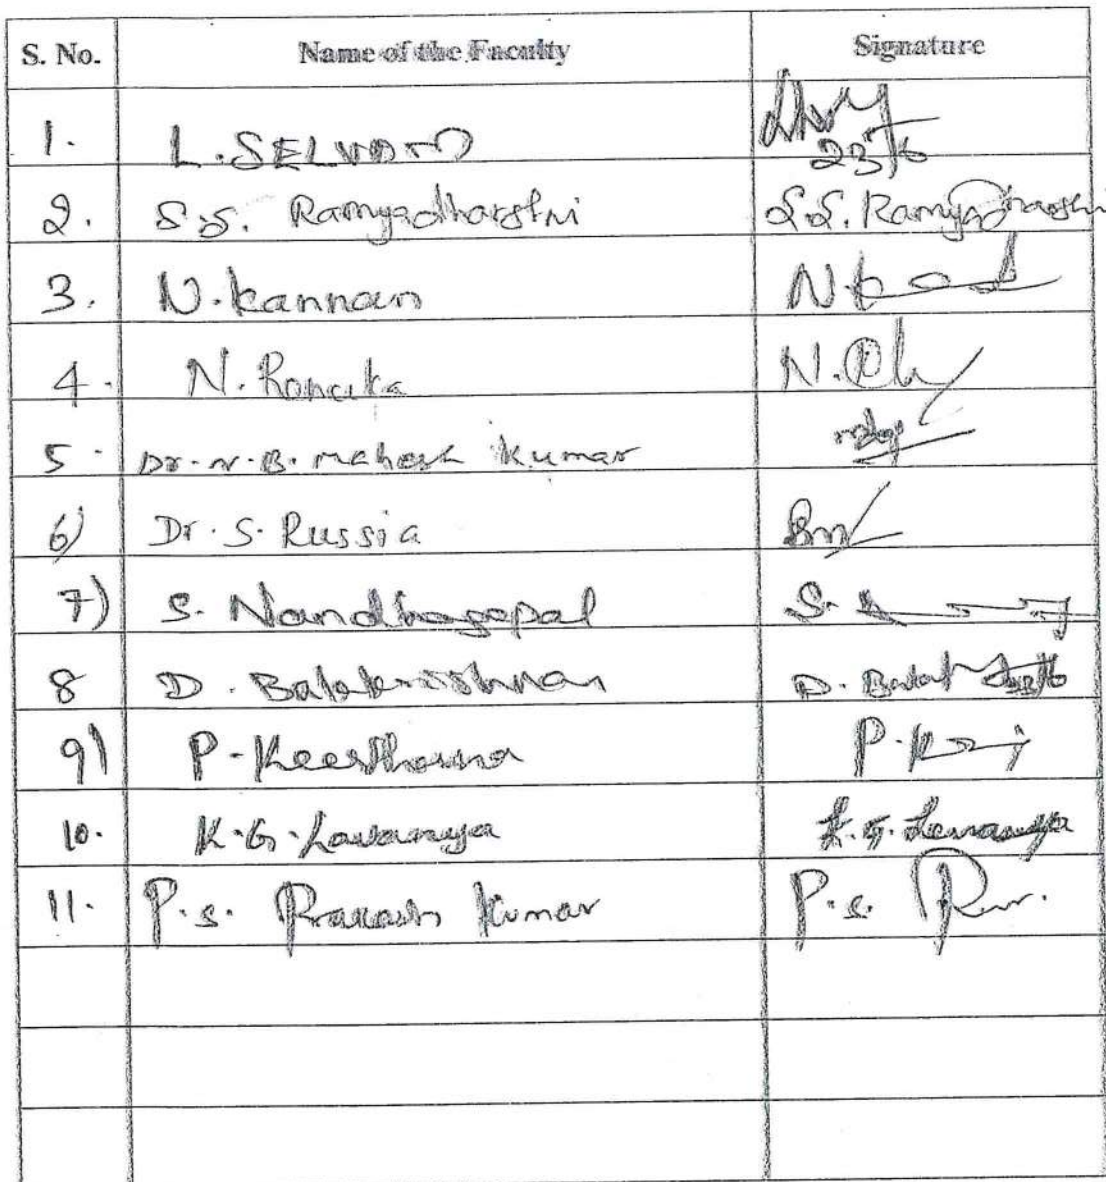 S. No. Name of the Faculty Signature
1. L. SELVAM 23/6
2. S.S. Ramyadharshni S.S. Ramyadharshni
3. N. Kannan N.
4. N. N.
5. Dr. N. B. Mahesh Kumar
6) Dr. S. Russia
7) S. Nandhagopal S.
8 D. Balakrishnan D. 23/6
9) P. Keerthanna P.
10. K.G. Lavanya K.G. Lavanya
11. P.S. Prakash Kumar P.S.